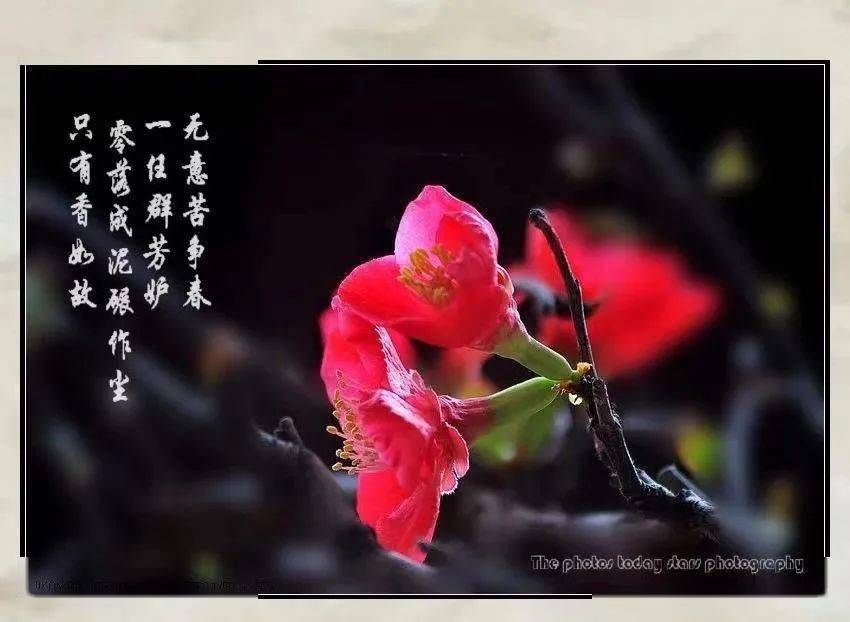 无意苦争春
一任群芳妒
零落成泥碾作尘
只有香如故
The photos today stars photography